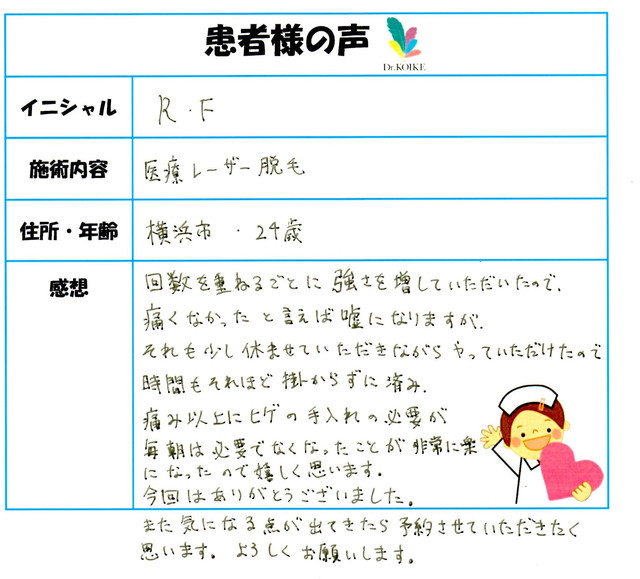 患者様の声
Dr.KOIKE
イニシャル
R・F
施術内容
医療レーザー脱毛
住所・年齢
横浜市 ・ 24歳
感想
回数を重ねるごとに強さを増していただいたので、
痛くなかったと言えば嘘になりますが、
それも少し休ませていただきながらやっていただけたので
時間もそれほど掛からずに済み、
痛み以上にヒゲの手入れの必要が
毎朝は必要でなくなったことが非常に楽
になったので嬉しく思います。
今回はありがとうございました。
また気になる点が出てきたら予約させていただきたく
思います。よろしくお願いします。